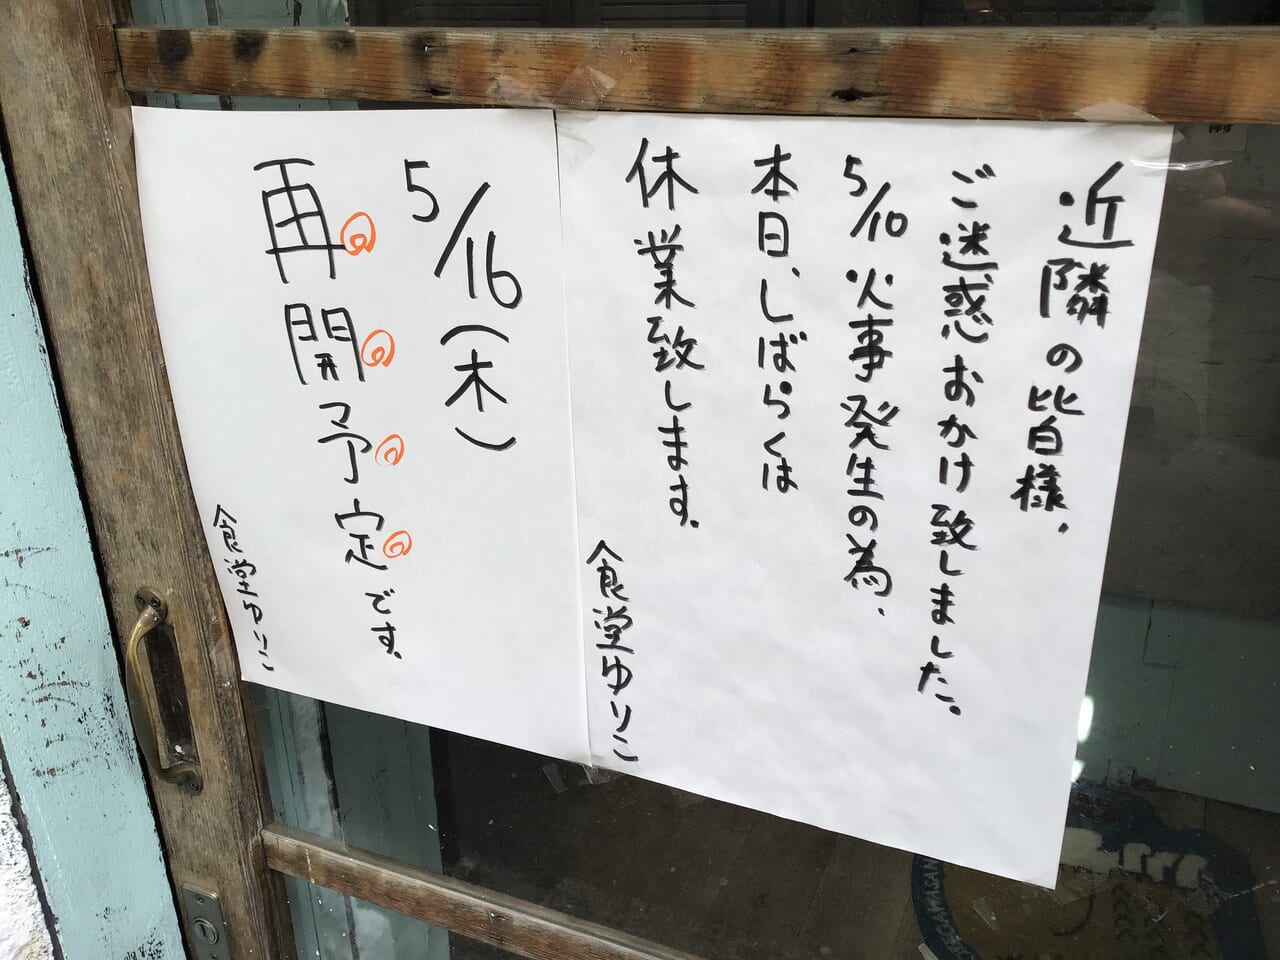 近隣の皆様、
ご迷惑おかけ致しました。
5/10 火事発生の為、
本日、しばらくは
休業致します。
食堂ゆりこ
5/16(木)
再開予定です。
食堂ゆりこ